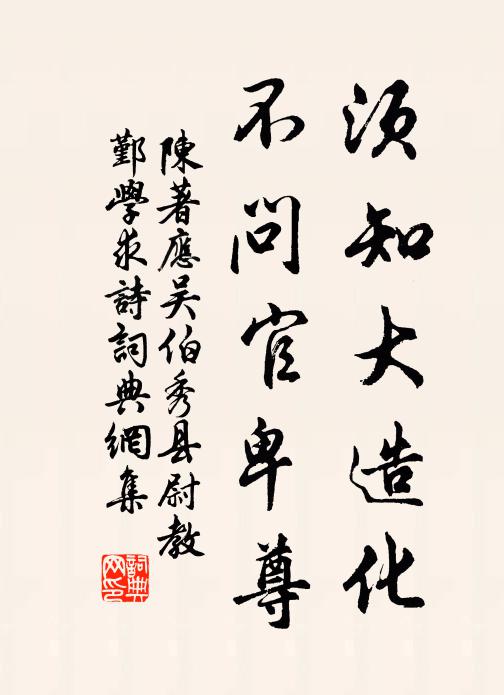 須知大造化
不問官卑尊
陳著應吴伯秀县尉教
鄞學求詩詞典網集
詞典网印